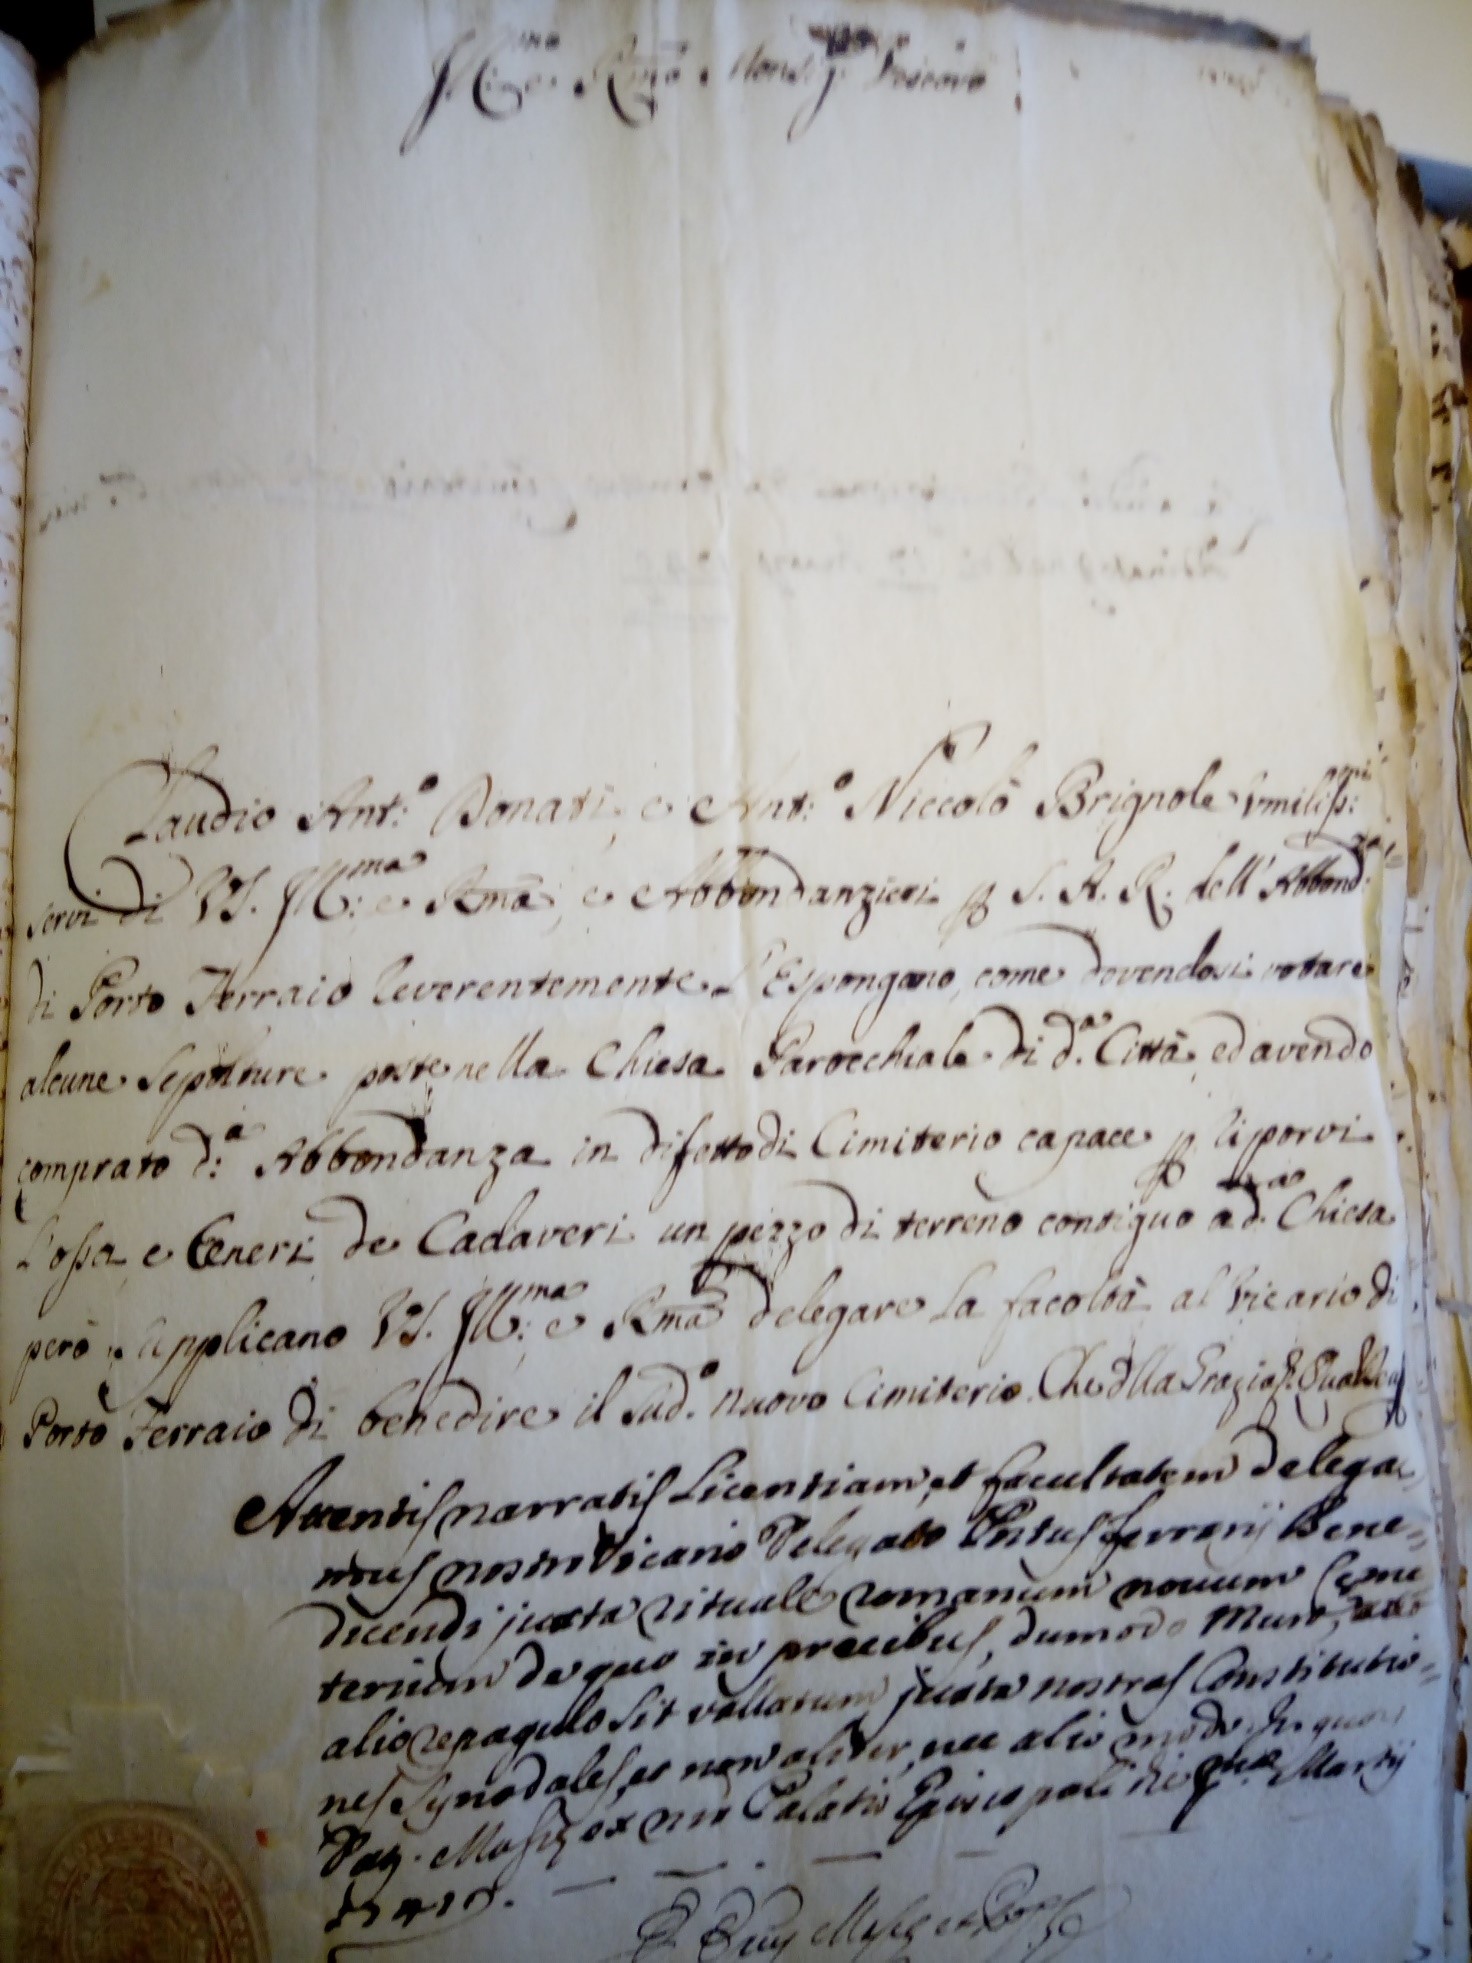 Ill:ma e Rma Monsig: Vescovo
Claudio Ant:o Donati, e Ant:o Niccolò Brignole Vmiliss:mi
servi di VS. Ill:ma e Rma, e Abbondanzieri p S. A. R. dell' Abbond:za
di Porto Ferraio Reverentemente L'Espongano, come dovendosi votare
alcune Sepolture poste nella Chiesa Parocchiale di d.a Città, ed avendo
comprato d:a Abbondanza in difetto di Cimiterio capace p riporvi
l'ossa e Ceneri de Cadaveri un pezzo di terreno contiguo a d.a Chiesa
però supplicano VS. Ill:ma e Rma delegare la facoltà al Vicario di
Porto Ferraio di benedire il Sud.o nuovo Cimiterio. Che dlla Grazia
Attentis narratis Licentiam, et facultatem delega-
mus nostro Vicario Delegato Portus Ferrarij Bene=
dicendi juxta rituale romanum novum Ceme
terium de quo in precibus, dummodo Muro,
alio repagulo sit vallatum juxta nostras Constitutio=
nes Synodales, et non aliter, nec alio modo. In quor
Dat. Massæ ex nro Palatio Episcopali die Martij